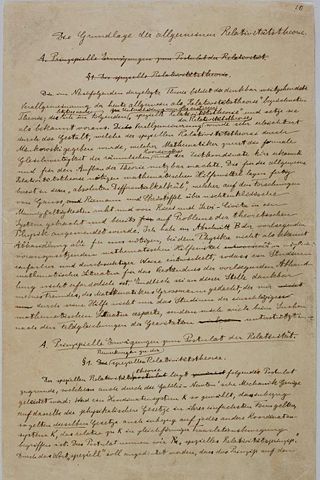 Die Grundlage der allgemeinen Relativitätstheorie.
A. Prinzipielle Erwägungen zum Postulat der Relativität.
§1. Die spezielle Relativitätstheorie.
Die im Nachfolgenden dargelegte Theorie bildet die denkbar weitgehendste
Verallgemeinerung der heute allgemein als "Relativitätstheorie" bezeichneten
Theorie; die
spezielle Relativitätstheorie" und setze sie
als bekannt voraus. Die Verallgemeinerung der Relativitätstheorie wurde sehr erleichtert
durch die Gestalt, welche der speziellen Relativitätstheorie durch
Minkowski gegeben wurde, welcher Mathematiker zuerst die formale
Gleichwertigkeit der räumlichen Koordinaten und der Zeitkoordinate klar erkannte
und für den Aufbau der Theorie nutzbar machte. Die für die allgemeine
Relativitätstheorie mathematischen Hilfsmittel lagen fertig
bereit in dem "absoluten Differentialkalkül", welcher auf den Forschungen
von Gauss, Riemann und Christoffel über nichteuklidische
Mannigfaltigkeiten ruht und von Ricci und Levi-Civita in ein
System gebracht und bereits auf Probleme der theoretischen
Physik angewendet wurde. Ich habe im Abschnitt B der vorliegenden
Abhandlung alle für uns nötigen, bei dem Physiker nicht als bekannt
vorauszusetzenden mathematischen Hilfsmittel in möglichst
einfacher und durchsichtiger Weise entwickelt, sodass ein Studium
mathematischer Literatur für das Verständnis der vorliegenden Abhandlung
nicht erforderlich ist. Endlich sei an dieser Stelle dankbar
meines Freundes, des Mathematikers Grossmann gedacht, der mir
durch seine Hilfe nicht nur das Studium der einschlägigen
mathematischen Literatur ersparte, sondern mich auch beim Suchen
nach den Feldgleichungen der Gravitation unterstützte.
A. Prinzipielle Erwägungen zum Postulat der Relativität.
Bemerkungen zu der
§1. Die spezielle Relativitätstheorie.
Der speziellen Relativitätstheorie liegt folgendes Postulat
zugrunde, welchem auch durch die Galilei-Newton'sche Mechanik Genüge
geleistet wird: Wird ein Koordinatensystem K so gewählt, dass inbezug
auf dasselbe die physikalischen Gesetze in ihrer einfachsten Form gelten,
so gelten dieselben Gesetze auch inbezug auf jedes andere Koordinaten-
system K', das relativ zu K in gleichförmiger Translationsbewegung
begriffen ist. Dies Postulat nennen wir "spezielles Relativitätsprinzip".
Durch das Wort "speziell" soll angedeutet werden, dass das Prinzip auf den